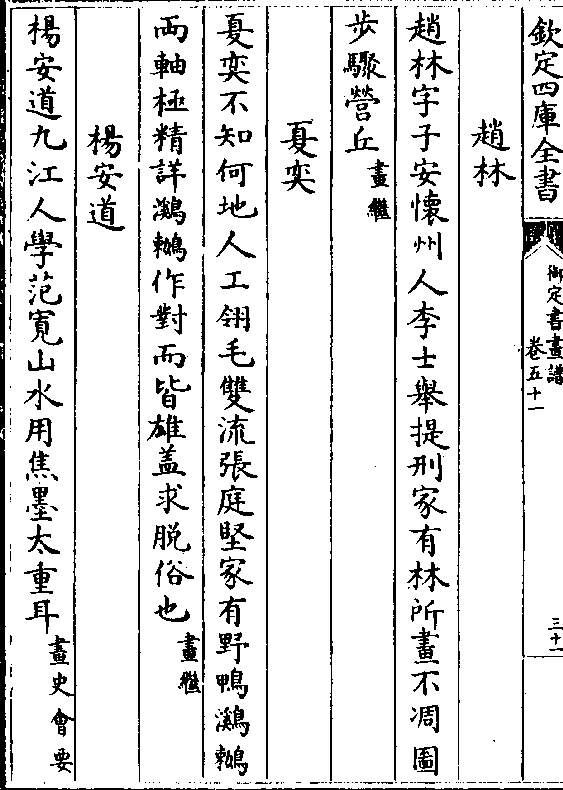 欽定四庫全書
御定書畫譜
卷五十一
三十一
趙林
趙林字子安懷州人李士舉提刑家有林所畫不凋圖
步驟營丘畫繼
夏奕
夏奕不知何地人工翎毛雙流張庭堅家有野鴨鸂鶒
兩軸極精詳鸂鶒作對而皆雄盖求脱俗也畫繼
楊安道
楊安道九江人學范寛山水用焦墨太重耳畫史會要